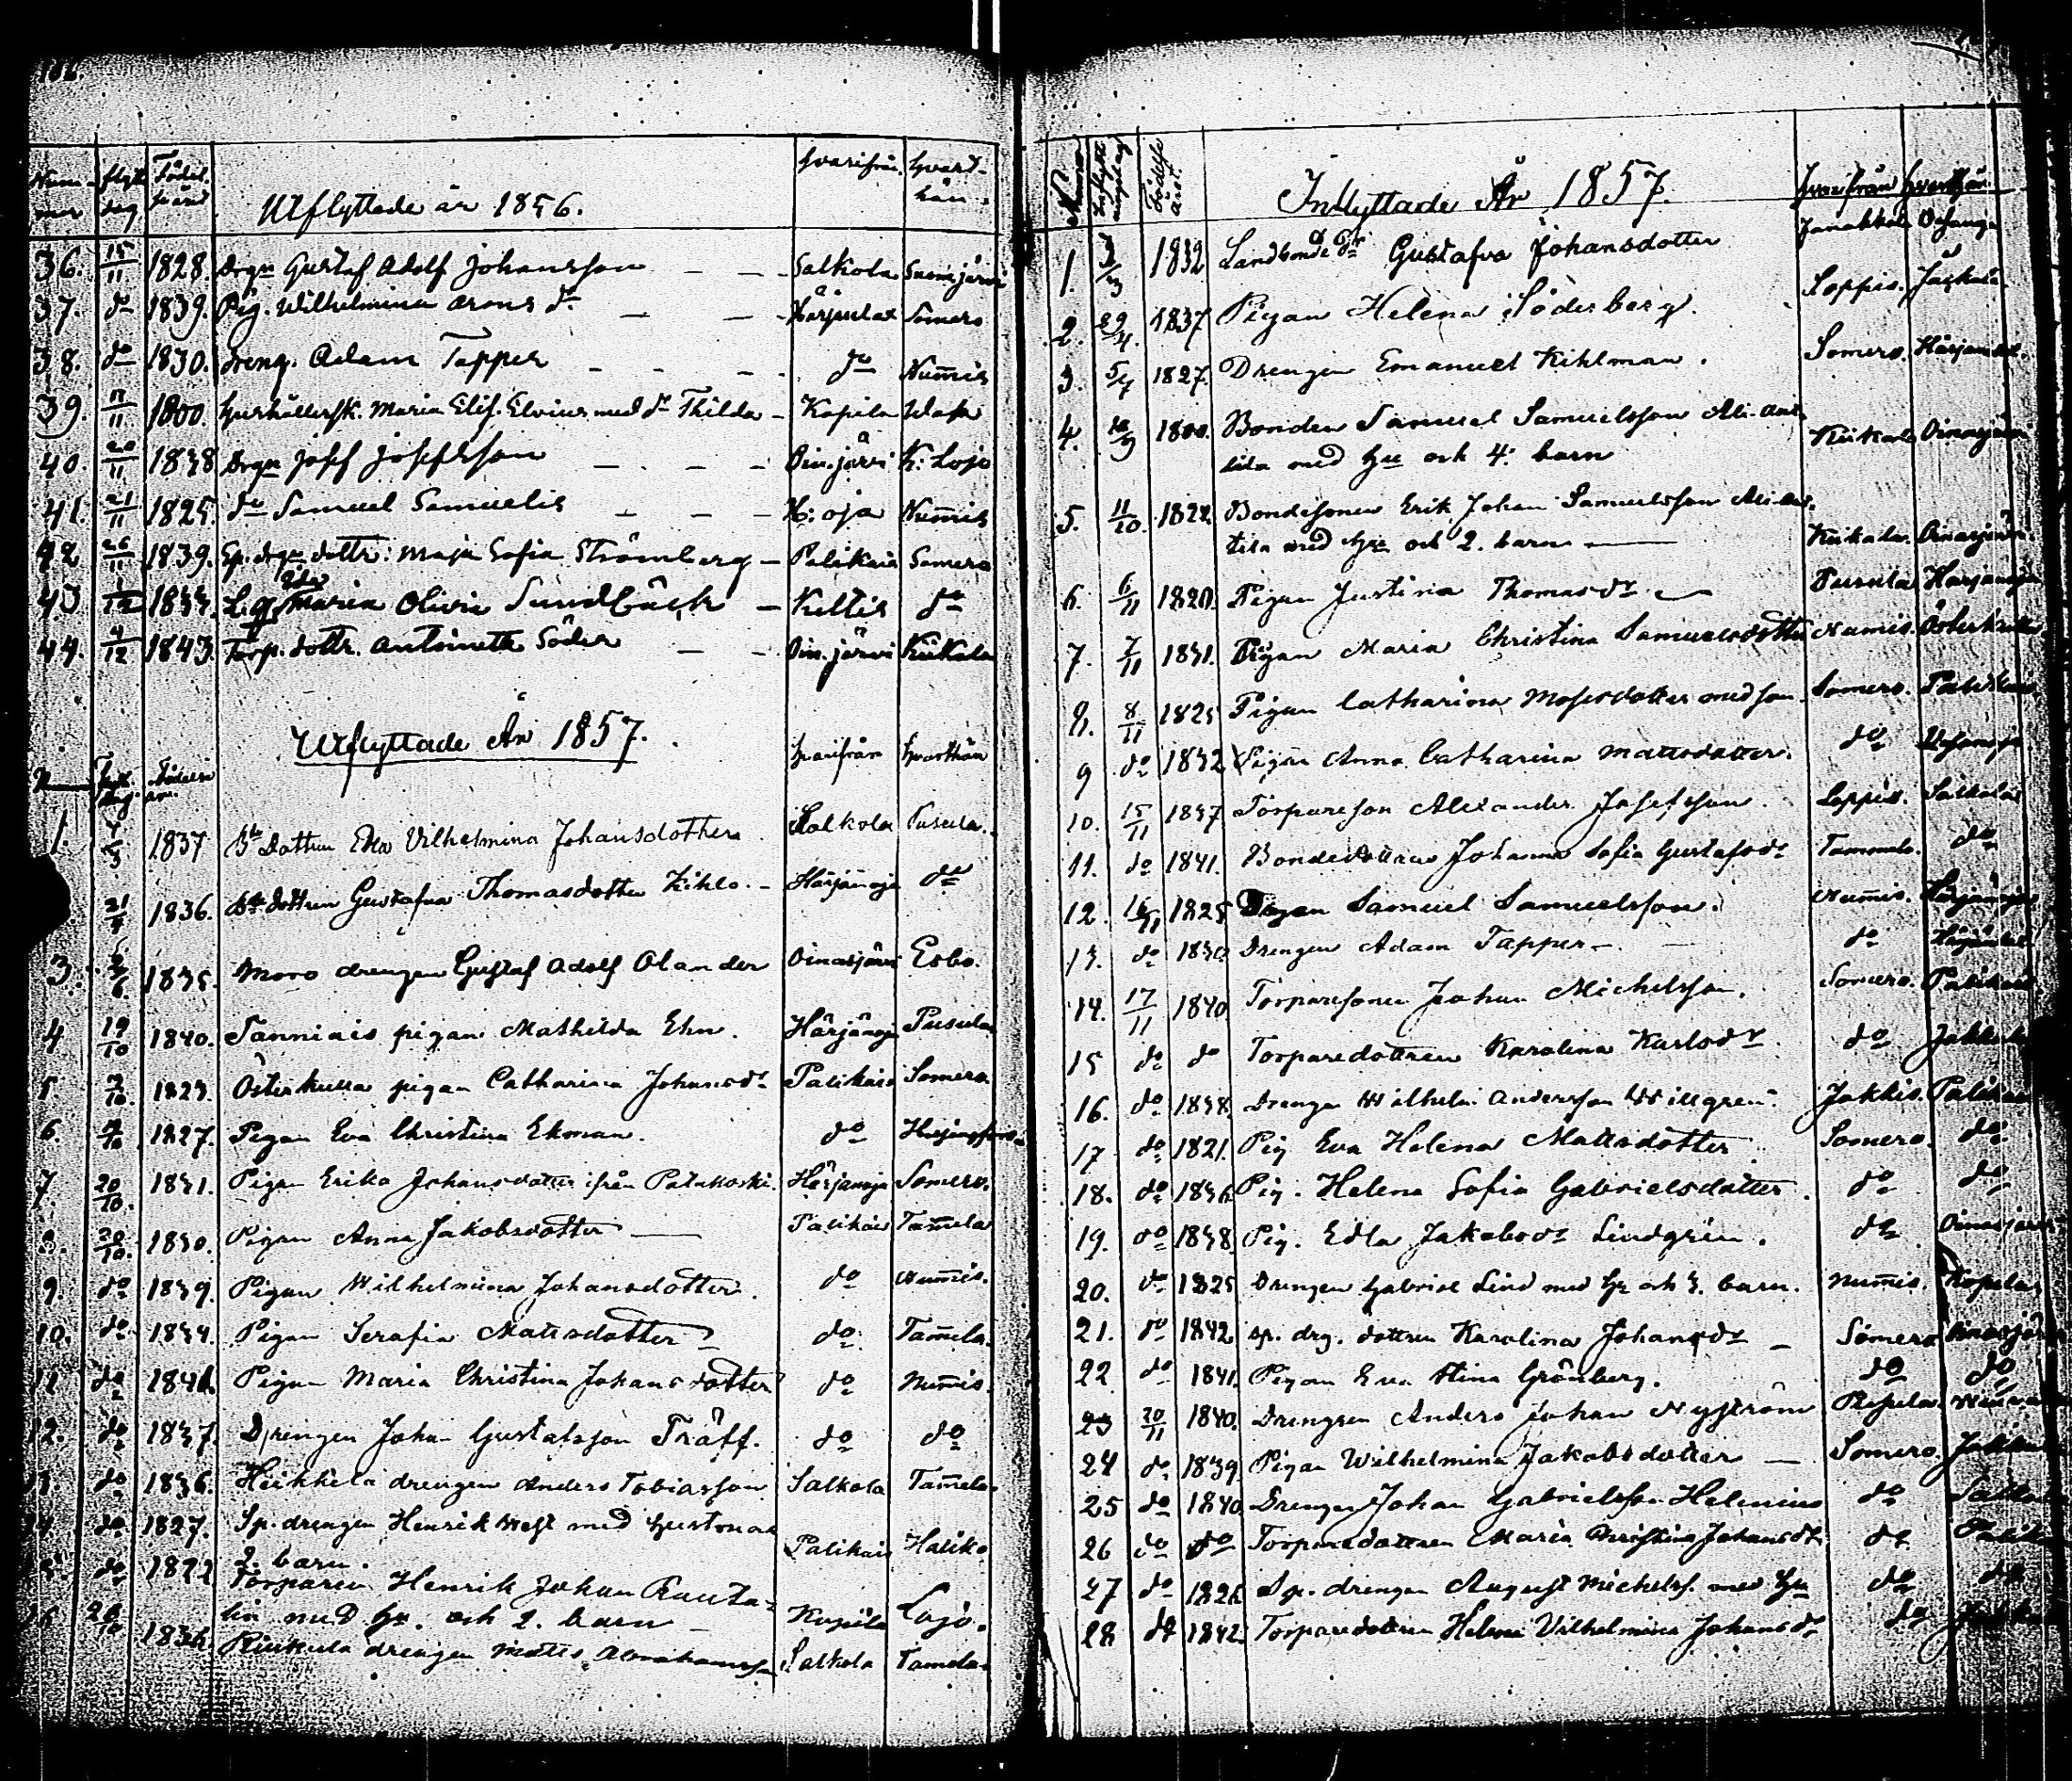 Num- mer flytt dag Födel. år Utflyttade år 1856. hvarifrån hvart-hän
36. 15/11 1828. Drgn Gustaf Adolf Johansson Salkola
37. do 1839. Pig. Wilhelmina Arons dr Härjula Somero
38. do 1830. Dreng. Adam Tapper do Num̄is
39. 11/11 1800. Hushållersk. Maria Elis. Elvius med dr Thilda Kopila
40. 20/11 1838 Drgn Josef Josefsson Oin.järvi K: Lojo
41. 21/11 1825. do Samuel Samuelis H: oja Num̄is
42 26/11 1839. Sp. drgn dottr: Maja Sofia Strömberg Palikais Somero
43 1/12 Maria Olivia Sundbäck Keltis do
44. 4/12 1843. Torp. dottr. Antoinette Söder Oin.järvi Kiikala
Utflyttade År 1857. hvarifrån hvarthän
1. 4/3 1837 Bde Dottren Eva Vilhelmina Johansdotter Salkola Pusula
21/4 1836. Bde dottren Gustafva Thomasdotter Kihlo. Härjänoja do
3. 1835. Moro drengen Gustaf Adolf Olander Oinasjärvi Esbo.
4 19/10 1840. Tanniais pigan Mathilda Ehn. Härjänoja Pusula
5. 1823. Österkulla pigan Catharina Johansdr Palikais Somero
6. 1827. Pigan Eva Christina Ekman. do Helsingfors
7. 20/10. 1831. Pigan Erika Johansdotter ifrån Palakoski. Härjänoja Somero.
8. 20/10. 1830. Pigan Anna Jakobsdotter Palikais Tam̄ela
9. do 1839. Pigan Wilhelmina Johansdotter. do Num̄is.
10. do 1834. Pigan Serafia Mattsdotter do. Tam̄ela.
11 do Pigan Maria Christina Johansdotter do Num̄is.
12. do 1837. Drengen Johan Gustafsson Träff. do do
13. do 1836. Heikkilä drengen Anders Tobiasson Salkola Tam̄ela.
14. do 1827. Sp. drengen Henrik West med hustru och
2. barn. Palikais Haliko
15. do 1822 Torparen Henrik Johan Rauta-
lin med hu. och 2. barn Kopila Lojo.
16 1836. drengen Matts Abrahamsson Salkola Tamela.
Nummer Inflyttnings dag Födelse året. Inflyttade År 1857. Hvarifrån hvarthän.
1. 3/3 1832 Landbonde Dr Gustafva Johansdotter Janakkala
2. 29/4. 1837 Pigan Helena Söderberg. Loppis.
3. 5/7 1827. Drengen Emanuel Kihlman. Somero.
4. 1800. Bonden Samuel Samuelsson Ali-Ant-
tila med hu och 4. barn Kiikala Oinasjärvi
5. 11/10. 1822. Bondesonen Erik Johan Samuelsson Ali-Ant-
tila med hu och 2. barn Kiikala. Oinasjärvi.
6. 6/11 1820. Pigan Justina Thomasdr Pusula
7. 7/11 1831. Pigan Maria Christina Samuelsdotter Num̄is. Österkulla
8. 8/11 1825 Pigan Catharina Mosesdotter med son Somero. Palikais
9 do 1832 Pigan Anna Catharina Mattsdotter. do
10. 15/11 1837 Torpareson Alexander Josefsson. Loppis. Salkola
11. do 1841. Bondedottren Johanna Sofia Gustafsdr Tammela. do
12. 1825 Samuel Samuelsson. Num̄is.
13. do 1830 Drengen Adam Tapper do
14. 17/11 1840 Torparesonen Johan Michelsson. Somero. Palikais
15 do do Torparedottren Karolina Karlsdr do
16. do 1838 Drengen Wilhelm Andersson Willgren. Jakkis. Palikais
17 do 1821. Pig Eva Helena Mattsdotter Somero. do
18. do 1836 Pig. Helena Sofia Gabrielsdotter. do do
19. do 1838. Pig. Edla Jakobsdr Lindgrén. do Oinasjärvi
20. do 1825 Drengen Gabriel Lind med hu och 3. barn. Num̄is. Kopila
21. do 1842 Sp. drg. dottren Karolina Johansdr Somero Oinasjärvi
22 do 1841. Pigan Eva Stina Grönberg. do do
23 20/11 1840. Drengen Anders Johan Nyström
24 do 1839. Pigan Wilhelmina Jakobsdotter Somero
25 do 1840. Drengen Johan Gabrielsson Helenius do
26 do do Torparedottren Maria Christina Johansdr do
27 do 1826 Sp. drengen August Michelss. med hu do do
28 do 1842. Torparedottren Helena Vilhelmina Johansdr do